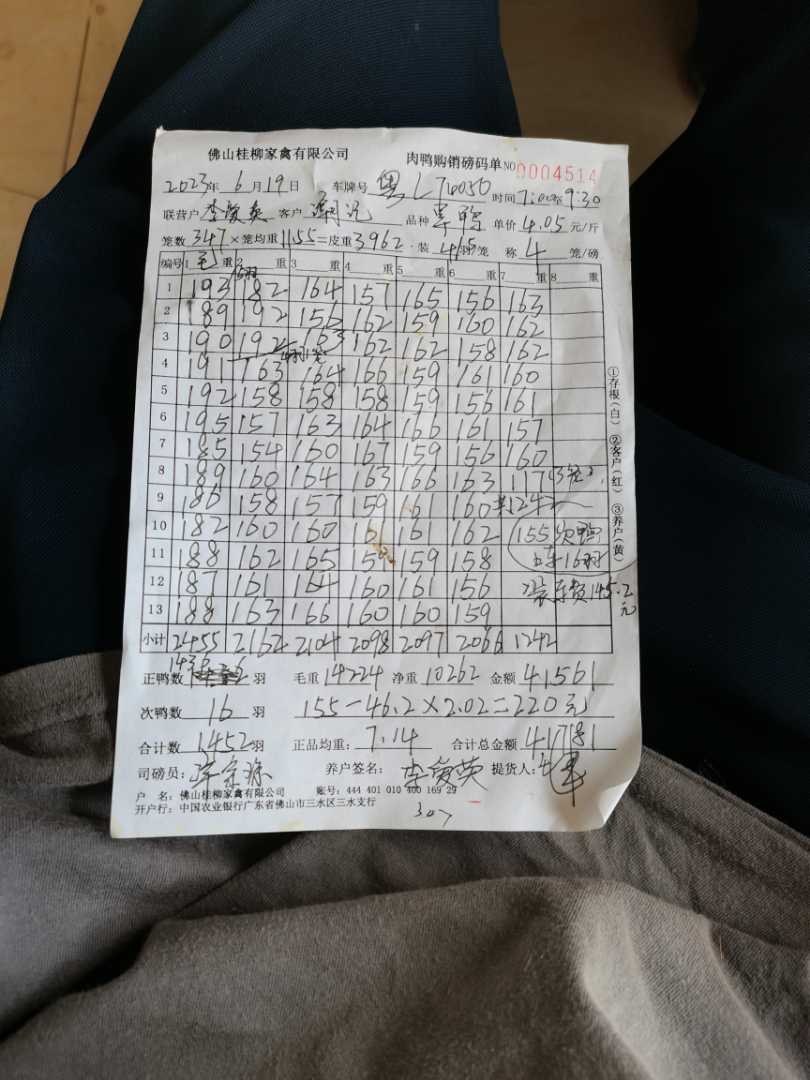 佛山桂柳家禽有限公司 肉鸭购销磅码单 NO 0004514
2023年 6月19日 车牌号 粤L74050 时间 7:00至9:30
联营户 李爱英 客户 品种 单价 4.05 元/斤
笼数 347 ×笼均重 1155=皮重3962 装 4/5羽/笼 称 4 笼/磅
编号 1 毛重 2 重 3 重 4 重 5 重 6 重 7 重 8 重
1 193 182 164 157 165 156 163
2 189 192 156 162 159 160 162
3 190 192 163 162 162 158 162
4 191 163 164 166 159 161 160
5 192 158 158 158 159 156 161
6 195 157 163 164 166 161 157
7 185 154 160 167 159 156 160
8 189 160 164 163 166 163 117
9 186 158 157 159 161 160 共1242
10 182 160 160 161 161 162 155次鸭
11 188 162 165 159 159 158 16羽
12 187 161 164 160 161 156 装车费145.2元
13 188 163 166 160 160 159
小计 2455 2162 2104 2098 2097 2066 1242
正鸭数 1436 羽 毛重 14224 净重 10262 金额 41561
次鸭数 16 羽 155-46.2×2.02=220元
合计数 1452羽 正品均重: 7.14 合计总金额 41781
司磅员: 养户签名: 李爱英 提货人:
户 名: 佛山桂柳家禽有限公司 账号: 444 401 010 400 169 29
开户行: 中国农业银行广东省佛山市三水区三水支行
①存根(白) ②客户(红) ③养户(黄)